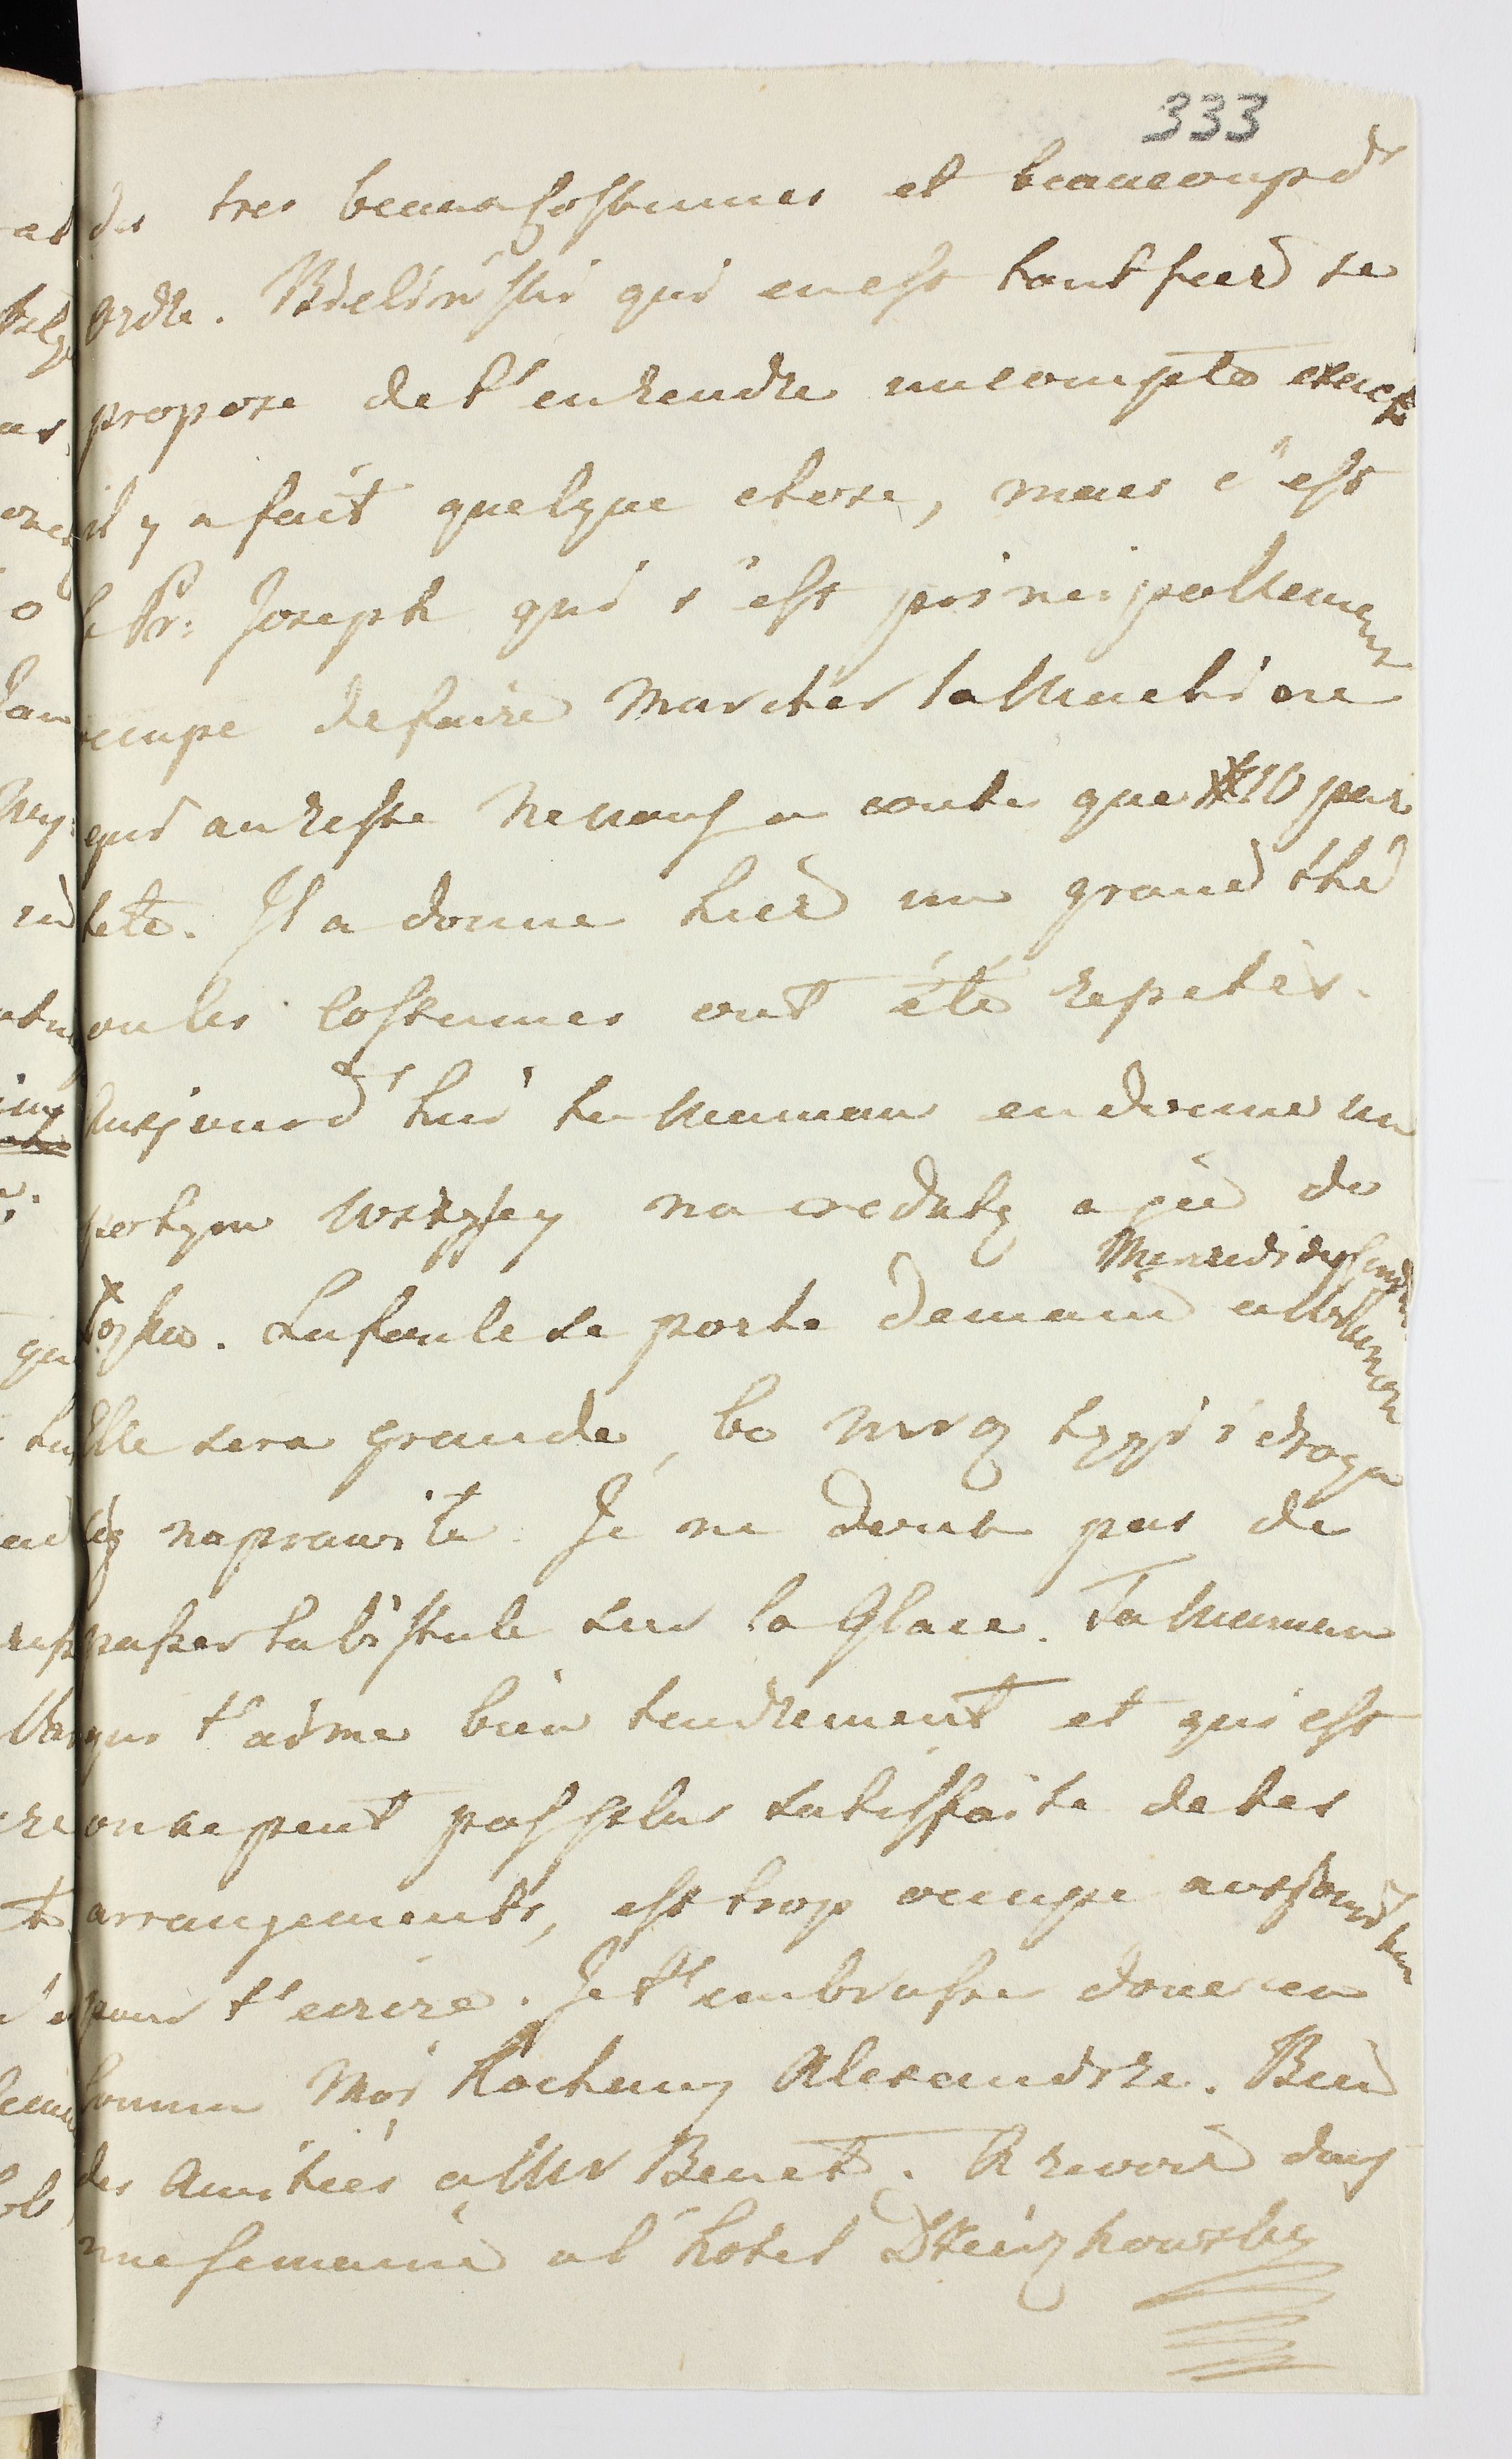 333
des tres beaux Costumes et beaucoup d'
ordre. Bielinski qui en est tout fier se
propose de t'en rendre un compte exact
il y a fait quelque chose, mais c'est
le Pr: Joseph qui s'est principallement
occupe de faire Marcher la Machine
qui au reste Ne nous a coute que # 10 par
tete. Il a donne hier un grand thé
ou les Costumes ont été repetés.
Aujourd'hui ta Maman en donne un
potym wszyscy na reduty a
Łozka. La foule se porte demain
Mercredi
Elle sera grande, bo mroz tęgi i droga
się naprawiła. Je ne doute pas de
passer la Vistule sur la Glace. Ta Maman
qui t'aime bien tendrement et qui est
on ne peut pas plus satisfaite de tes
arrangements, est trop occupe aujourd'hui
pour t'ecrire. Je t'embrasse donc en
comun Moi Kochany Alexandrze. Bien
des Amitiés a Mr Benet. A revoir dans
une semaine a l'hotel